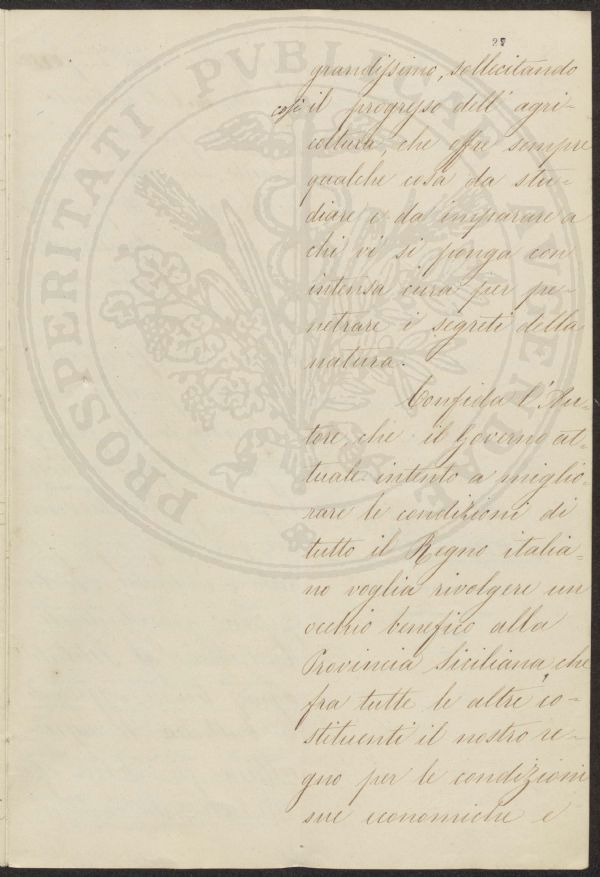 27
grandissimo, sollecitando
così il progresso dell' agri-
coltura, che offre sempre
qualche cosa da stu-
diare e da imparare a
chi vi si ponga con
intensa cura per pe-
netrare i segreti della
natura.
Confida l'Au-
tore, che il Governo at-
tuale intento a miglio-
rare le condizioni di
tutto il Regno italia-
no voglia rivolgere un
occhio benefico alla
Provincia Siciliana, che
fra tutte le altre co-
stituenti il nostro re-
gno per le condizioni
sue economiche e
PROSPERITATI PVBLICAE AVGENDAE